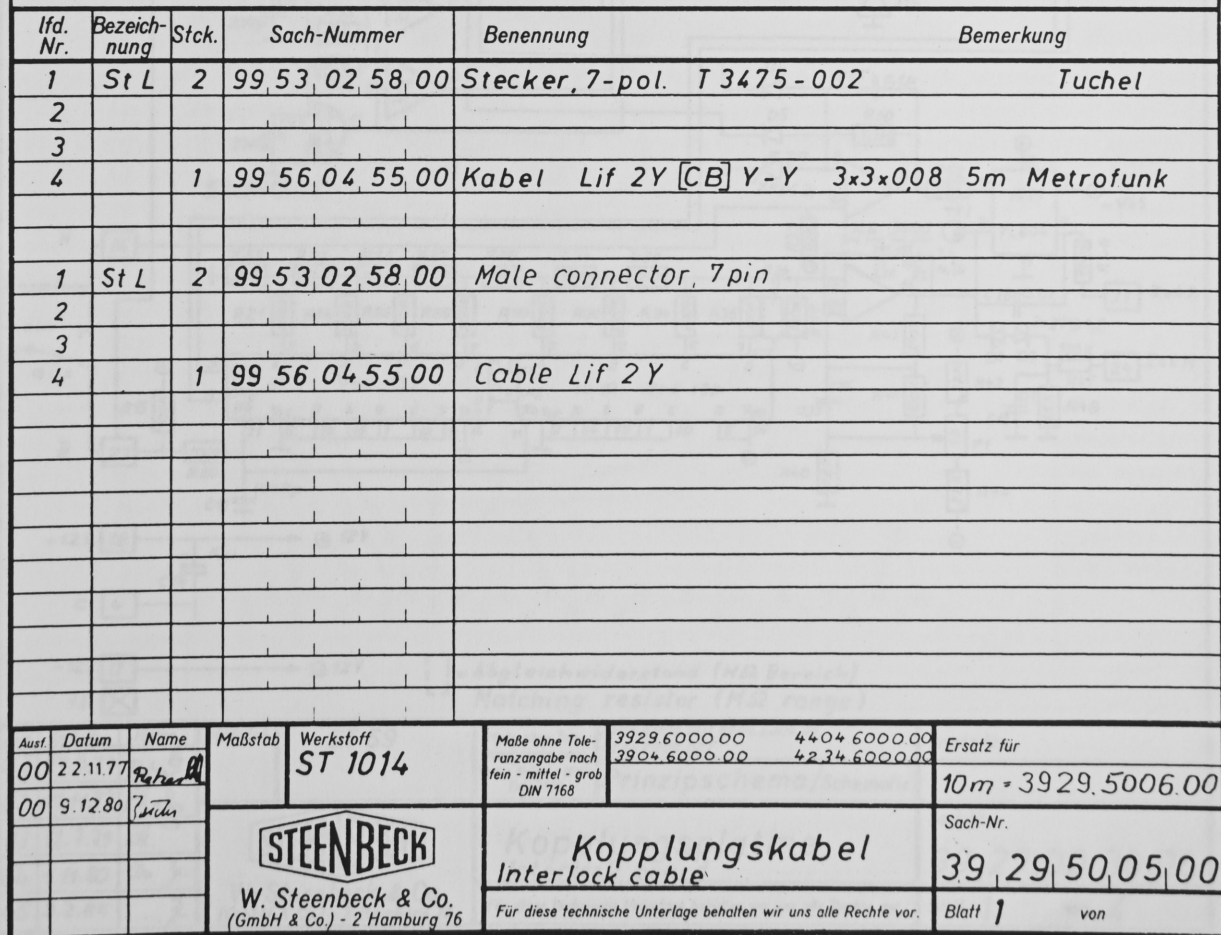 lfd. Nr. Bezeich-nung Stck. Sach-Nummer Benennung Bemerkung
1 St L 2 99 53 02 58 00 Stecker, 7-pol. T 3475-002 Tuchel
2
3
4 1 99 56 04 55 00 Kabel Lif 2Y [CB] Y-Y 3x3x0,08 5m Metrofunk
1 St L 2 99 53 02 58 00 Male connector, 7 pin
2
3
4 1 99 56 04 55 00 Cable Lif 2Y
[ ] = Abgleichwiderstand (MΩ Bereich)
Matching resistor (MΩ range)
Ausf. Datum Name
00 22.11.77
00 9.12.80
Maßstab
Werkstoff
ST 1014
Maße ohne Tole-
ranzangabe nach
fein - mittel - grob
DIN 7168
3929.6000.00 4404 6000.00
3904.6000.00 4234.6000.00
Prinzipschema/
Ersatz für
10m = 3929.5006.00
STEENBECK
W. Steenbeck & Co.
(GmbH & Co.) - 2 Hamburg 76
Kopplungskabel
Interlock cable
Für diese technische Unterlage behalten wir uns alle Rechte vor.
Sach-Nr.
39 29 50 05 00
Blatt 1 von